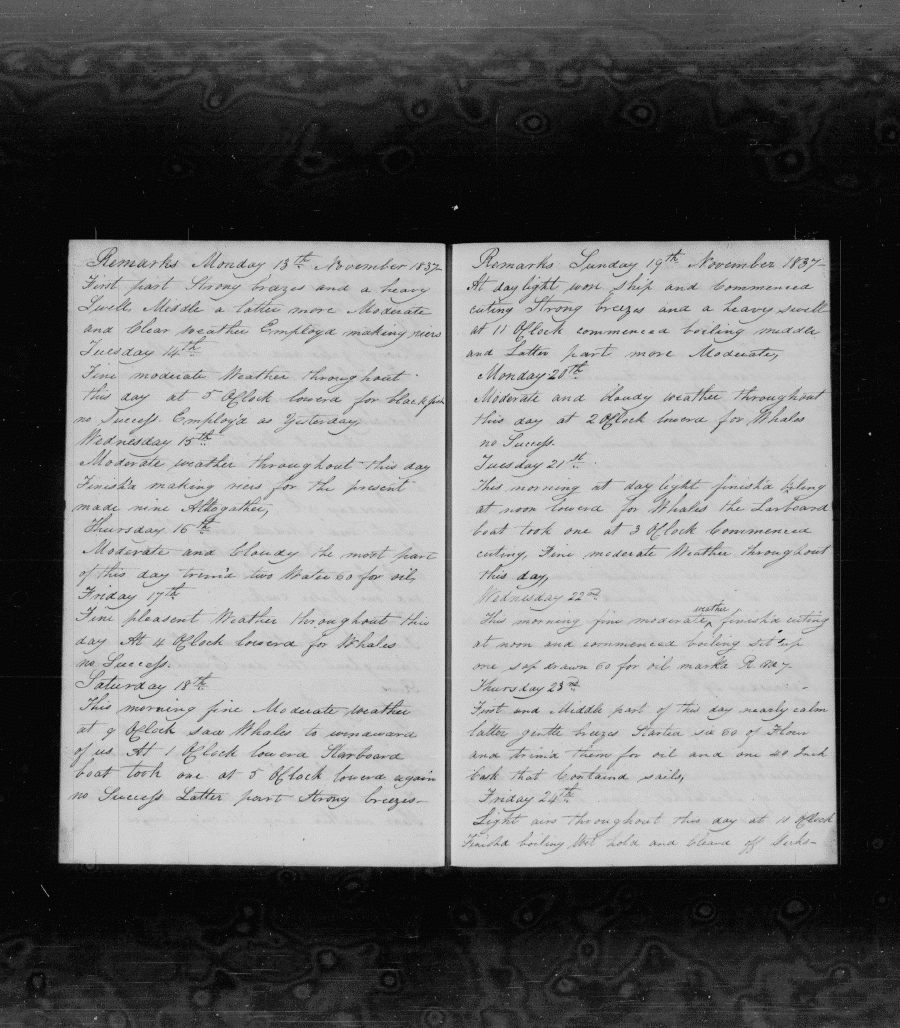 Remarks Monday 13th November 1837
First part Strong breezes and a heavy
Swell, Middle & latter more Moderate
and Clear weather Employd making
Tuesday 14th
Fine moderate Weather throughout
this day at 5 OClock lowerd for blackfish
no Success. Employ'd as Yesterday
Wednesday 15th
Moderate weather throughout this day
Finish'd making for the present
made nine Altogather,
Thursday 16th
Moderate and Cloudy the most part
of this day trim'd two Water 60 for oil,
Friday 17th
Fine pleasent Weather throughout this
day At 4 OClock lowerd for Whales
no Success.
Saturday 18th
This morning fine Moderate weather
at 9 OClock saw Whales to winward
of us. At 1 OClock lowerd Starboard
boat took one at 5 OClock lowerd again
no Success Latter part Strong breezes-
Remarks Sunday 19th November 1837-
At daylight won ship and Commenced
cuting Strong breezes and a heavy swell
at 11 OClock commenced boiling middle
and Latter part more Moderate,
Monday 20th
Moderate and Cloudy weather throughout
this day at 2 OClock lowerd for Whales
no Success.
Tuesday 21st
This morning at day light finish'd boiling
at noon lowerd for Whales the Larboard
boat took one at 3 OClock Commenced
cuting, Fine moderate Weather throughout
this day,
Wednesday 22nd
This morning fine moderate weather finish'd cuting
at noon and commenced boiling set up
one drawn 60 for oil mark'd R
Thursday 23rd
First and Middle part of this day nearly calm
latter gentle breezes Started six 60 of Flour
and trim'd them for oil and one 40 Inch
Cask that Containd sails,
Friday 24th
Light airs throughout this day at 10 OClock
Finishd boiling Wet hold and Cleard off Decks-